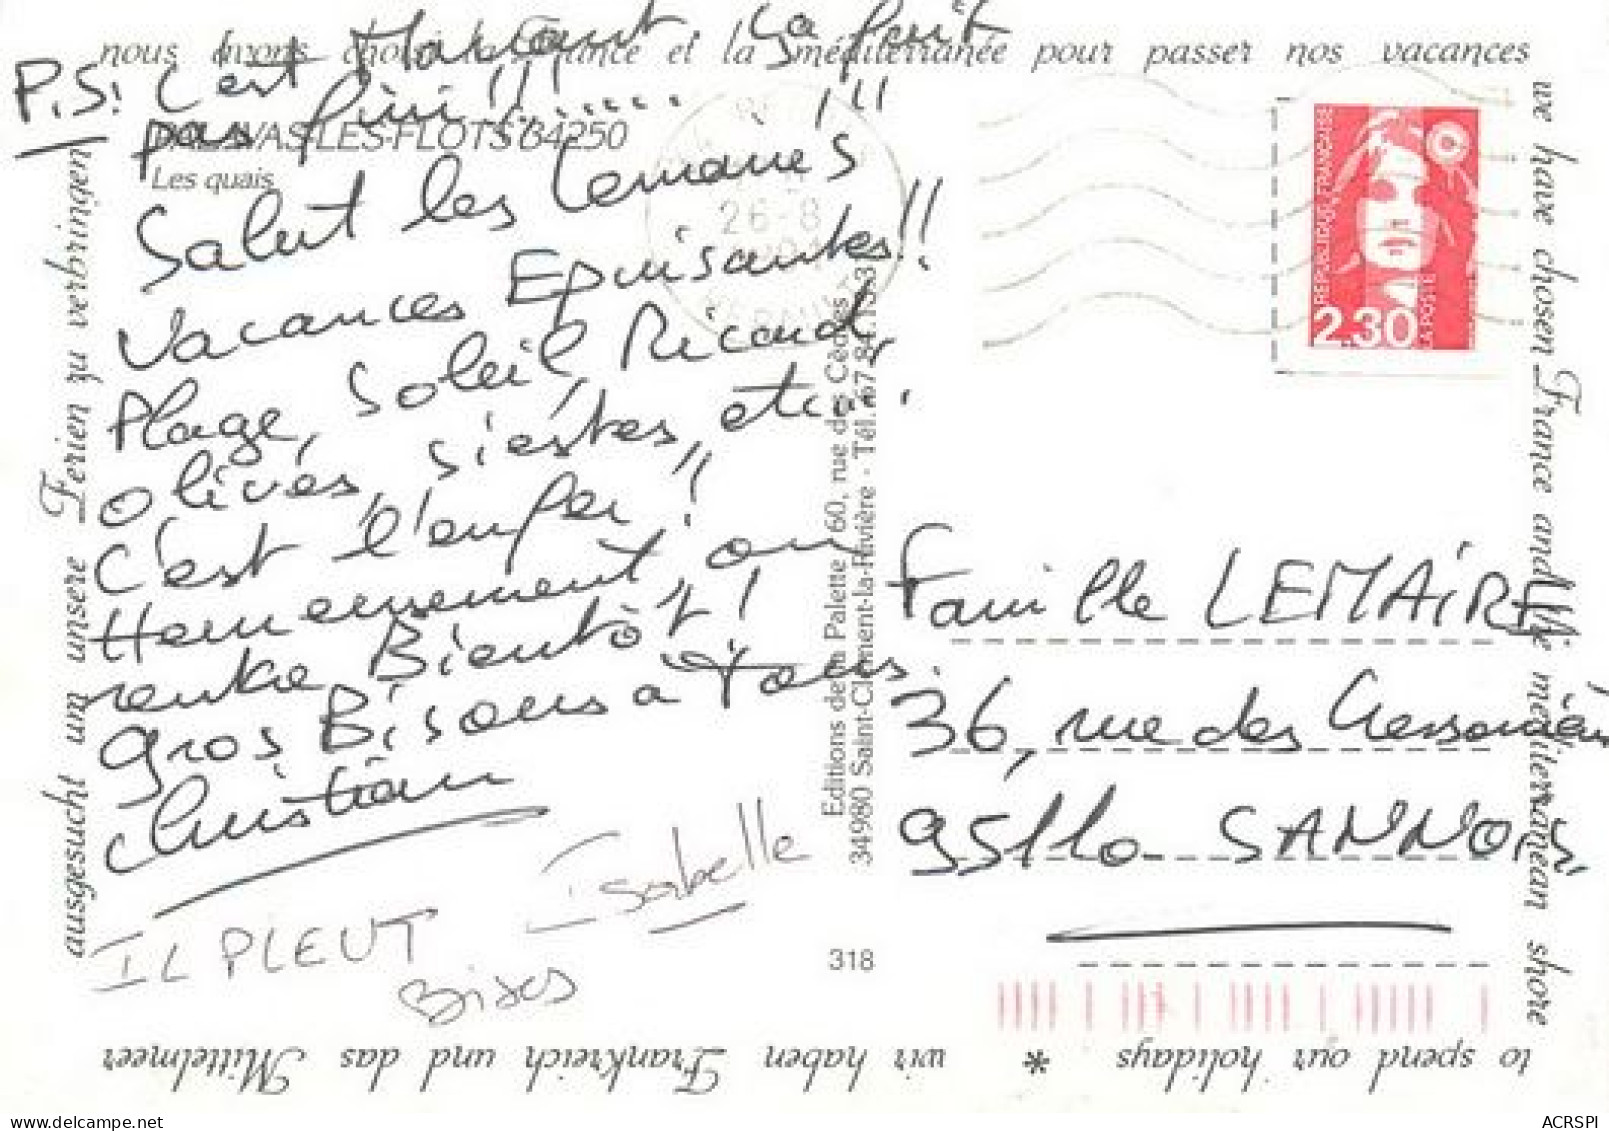 nous avons choisi la France et la méditerranée pour passer nos vacances
P.S! C'est Marrant, Sa finit
pas fini!!!....... !!!
PALAVAS-LES-FLOTS 34250
Les quais
Salut les Lemaires
Vacances Epuisantes!!
Plage, Soleil, Ricard,
Olives, siestes, etc..
C'est l'enfer!!
Heureusement, on
rentre Bientôt!
Gros Bisous a tous.
Christian
Isabelle
IL PLEUT
Bises
Editions de la Palette 60, rue des Cèdres
34980 Saint-Clément-la-Rivière - Tél. 67.84.15.37
318
26-8
REPUBLIQUE FRANÇAISE
2.30
LA POSTE
Famille LEMAIRE
36, rue des
95110 SANNOIS
we have chosen France and the mediterranean shore
to spend our holidays *
wir haben Frankreich und das Mittelmeer
ausgesucht um unsere Ferien zu verbringen
ACRSPI